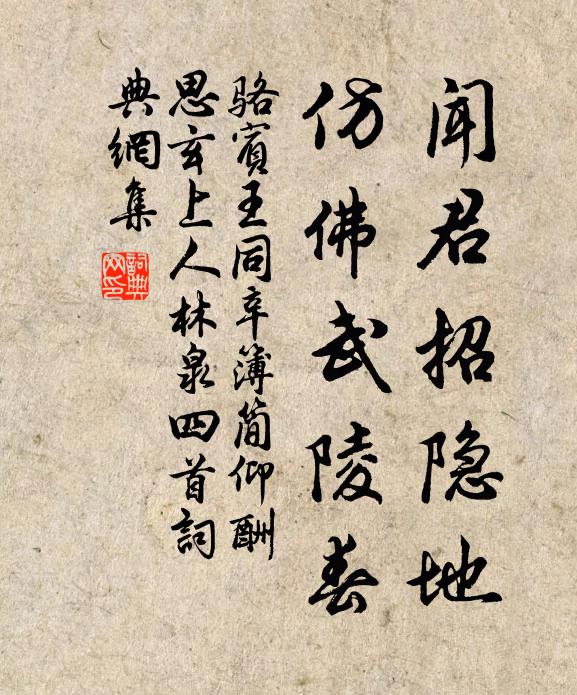 闻君招隐地
仿佛武陵春
骆賓王同辛簿简仰酬
思玄上人林泉四首詞
典網集
詞典网印